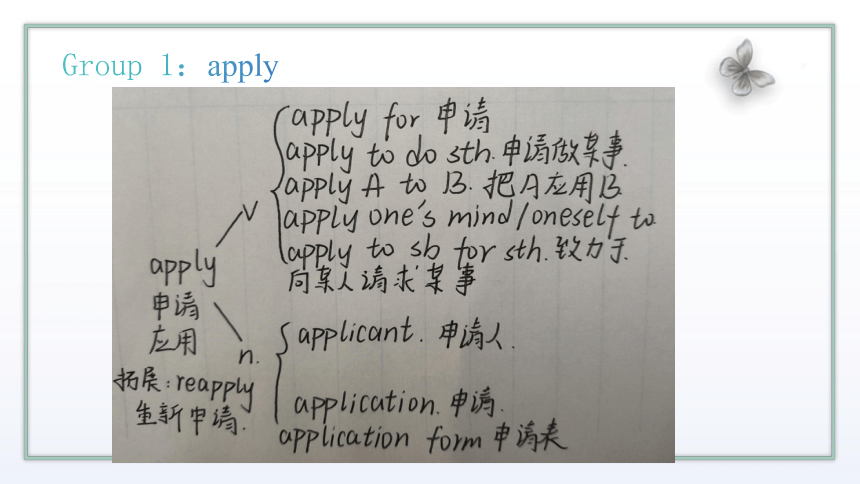 Group 1：apply
apply for 申请
apply to do sth. 申请做某事.
apply A to B. 把A应用B
V
apply one's mind/oneself to
apply to sb for sth. 致力于.
向某人请求某事
apply
申请
应用
n.
applicant. 申请人.
拓展：reapply
重新申请.
application. 申请.
application form 申请表